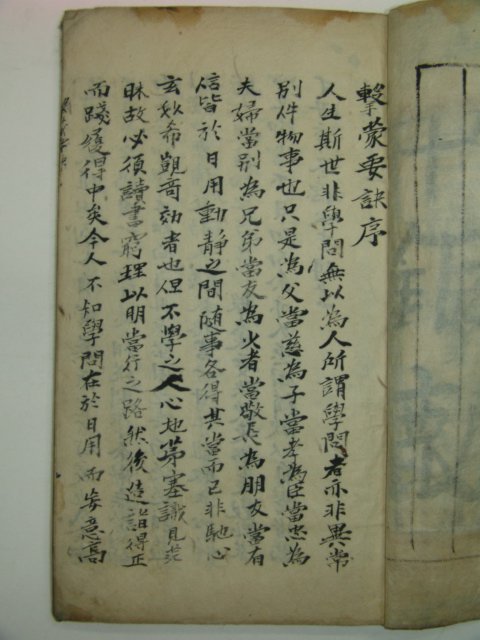 擊蒙要訣序
人生斯世非學問無以為人所謂學問者亦非異常
別件物事也只是為父當慈為子當孝為臣當忠為
夫婦當別為兄弟當友為少者當敬長為朋友當有
信皆於日用動靜之間随事各得其當而已非馳心
玄妙希覬奇効者也但不學之人心地茅塞識見茫
昧故必須讀書窮理以明當行之路然後造詣得正
而踐履得中矣今人不知學問在於日用而妄意高